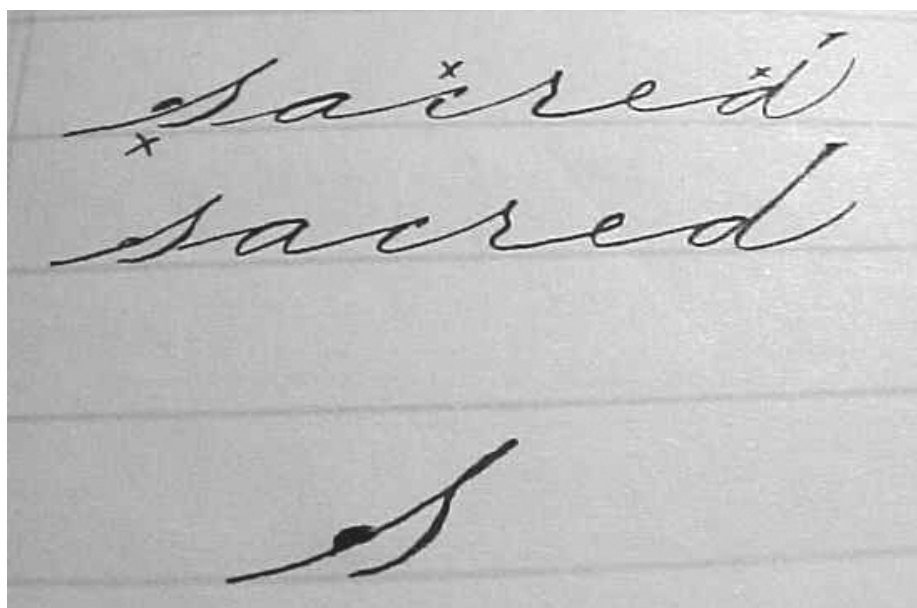 sacred
sacred
s